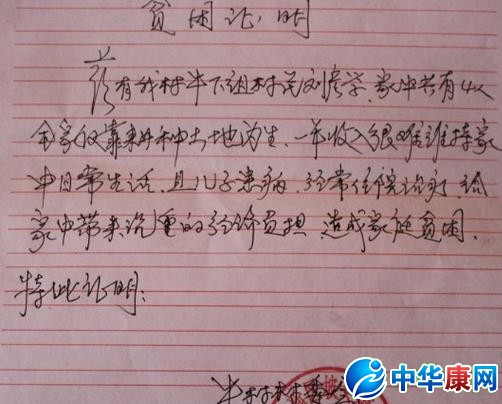 贫困证明
兹有我村牛下组村民刘彦学,家中共有4人
全家仅靠耕种土地为生,一年收入很难维持家
中日常生活,且儿子患病,经常住院治疗,给
家中带来沉重的经济负担,造成家庭贫困,
特此证明:
牛村村委会
中华康网